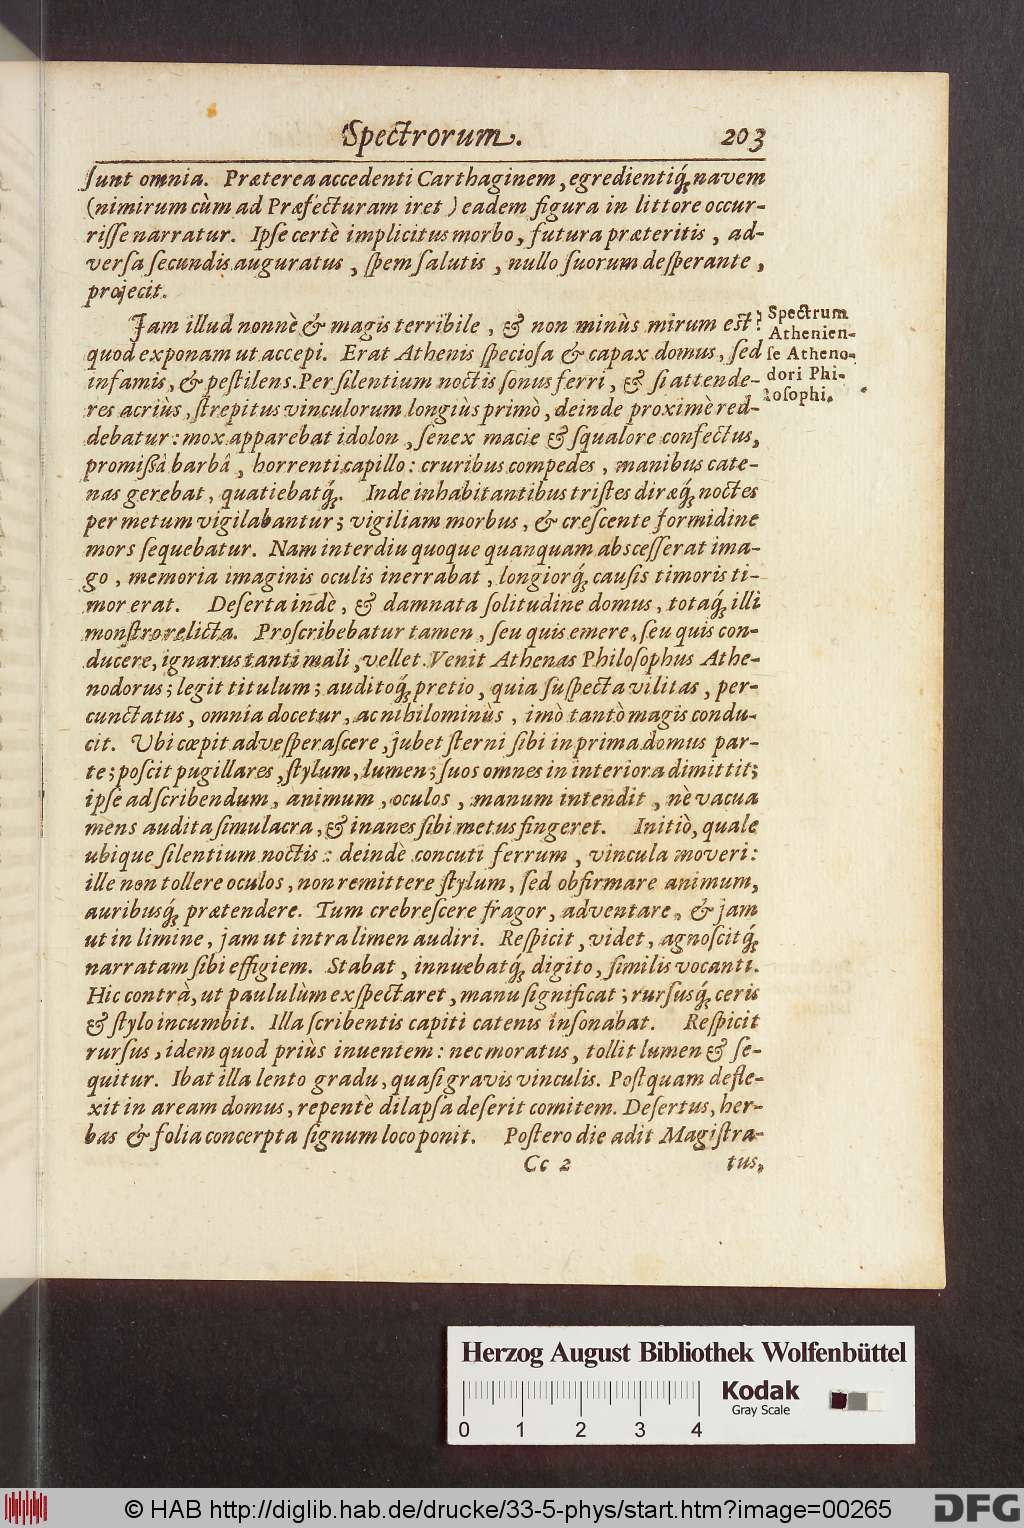 Spectrorum. 203
ſunt omnia. Præterea accedenti Carthaginem, egredientiq́; navem
(nimirum cùm ad Præfecturam iret) eadem figura in littore occur-
riſſe narratur. Ipſe certè implicitus morbo, futura præteritis, ad-
verſa ſecundis auguratus, ſpem ſalutis, nullo ſuorum deſperante,
projecit.
Jam illud nonnè & magis terribile, & non minùs mirum est?
quod exponam ut accepi. Erat Athenis ſpecioſa & capax domus, ſed
infamis, & peſtilens. Per ſilentium noctis ſonus ferri, & ſi attende-
res acriùs, ſtrepitus vinculorum longiùs primò, deinde proximè red-
debatur: mox apparebat idolon, ſenex macie & ſqualore confectus,
promiſsâ barbâ, horrenti capillo: cruribus compedes, manibus cate-
nas gerebat, quatiebatq́;. Inde inhabitantibus triſtes diræq́; noctes
per metum vigilabantur; vigiliam morbus, & creſcente formidine
mors ſequebatur. Nam interdiu quoque quanquam abſceſſerat ima-
go, memoria imaginis oculis inerrabat, longiorq́; cauſis timoris ti-
mor erat. Deſerta indè, & damnata ſolitudine domus, totaq́; illi
monſtro relicta. Proſcribebatur tamen, ſeu quis emere, ſeu quis con-
ducere, ignarus tanti mali, vellet. Venit Athenas Philoſophus Athe-
nodorus; legit titulum; auditoq́; pretio, quia ſuſpecta vilitas, per-
cunctatus, omnia docetur, ac nihilominùs, imò tantò magis condu-
cit. Ubi cœpit adveſperaſcere, jubet ſterni ſibi in prima domus par-
te; poſcit pugillares, ſtylum, lumen; ſuos omnes in interiora dimittit;
ipſe ad ſcribendum, animum, oculos, manum intendit, nè vacua
mens audita ſimulacra, & inanes ſibi metus fingeret. Initiò, quale
ubique ſilentium noctis: deindè concuti ferrum, vincula moveri:
ille non tollere oculos, non remittere ſtylum, ſed obfirmare animum,
auribusq́; prætendere. Tum crebreſcere fragor, adventare, & jam
ut in limine, jam ut intra limen audiri. Reſpicit, videt, agnoſcitq́;
narratam ſibi effigiem. Stabat, innuebatq́; digito, ſimilis vocanti.
Hic contrà, ut paululùm exſpectaret, manu ſignificat; rurſusq́; ceris
& ſtylo incumbit. Illa ſcribentis capiti catenis inſonabat. Reſpicit
rurſus, idem quod priùs inuentem: nec moratus, tollit lumen & ſe-
quitur. Ibat illa lento gradu, quaſi gravis vinculis. Poſtquam defle-
xit in aream domus, repentè dilapſa deſerit comitem. Deſertus, her-
bas & folia concerpta ſignum loco ponit. Poſtero die adit Magiſtra-
Cc 2 tus,
Spectrum
Athenien-
ſe Atheno-
dori Phi-
loſophi.
Herzog August Bibliothek Wolfenbüttel
Kodak
Gray Scale
0 1 2 3 4
© HAB http://diglib.hab.de/drucke/33-5-phys/start.htm?image=00265
DFG